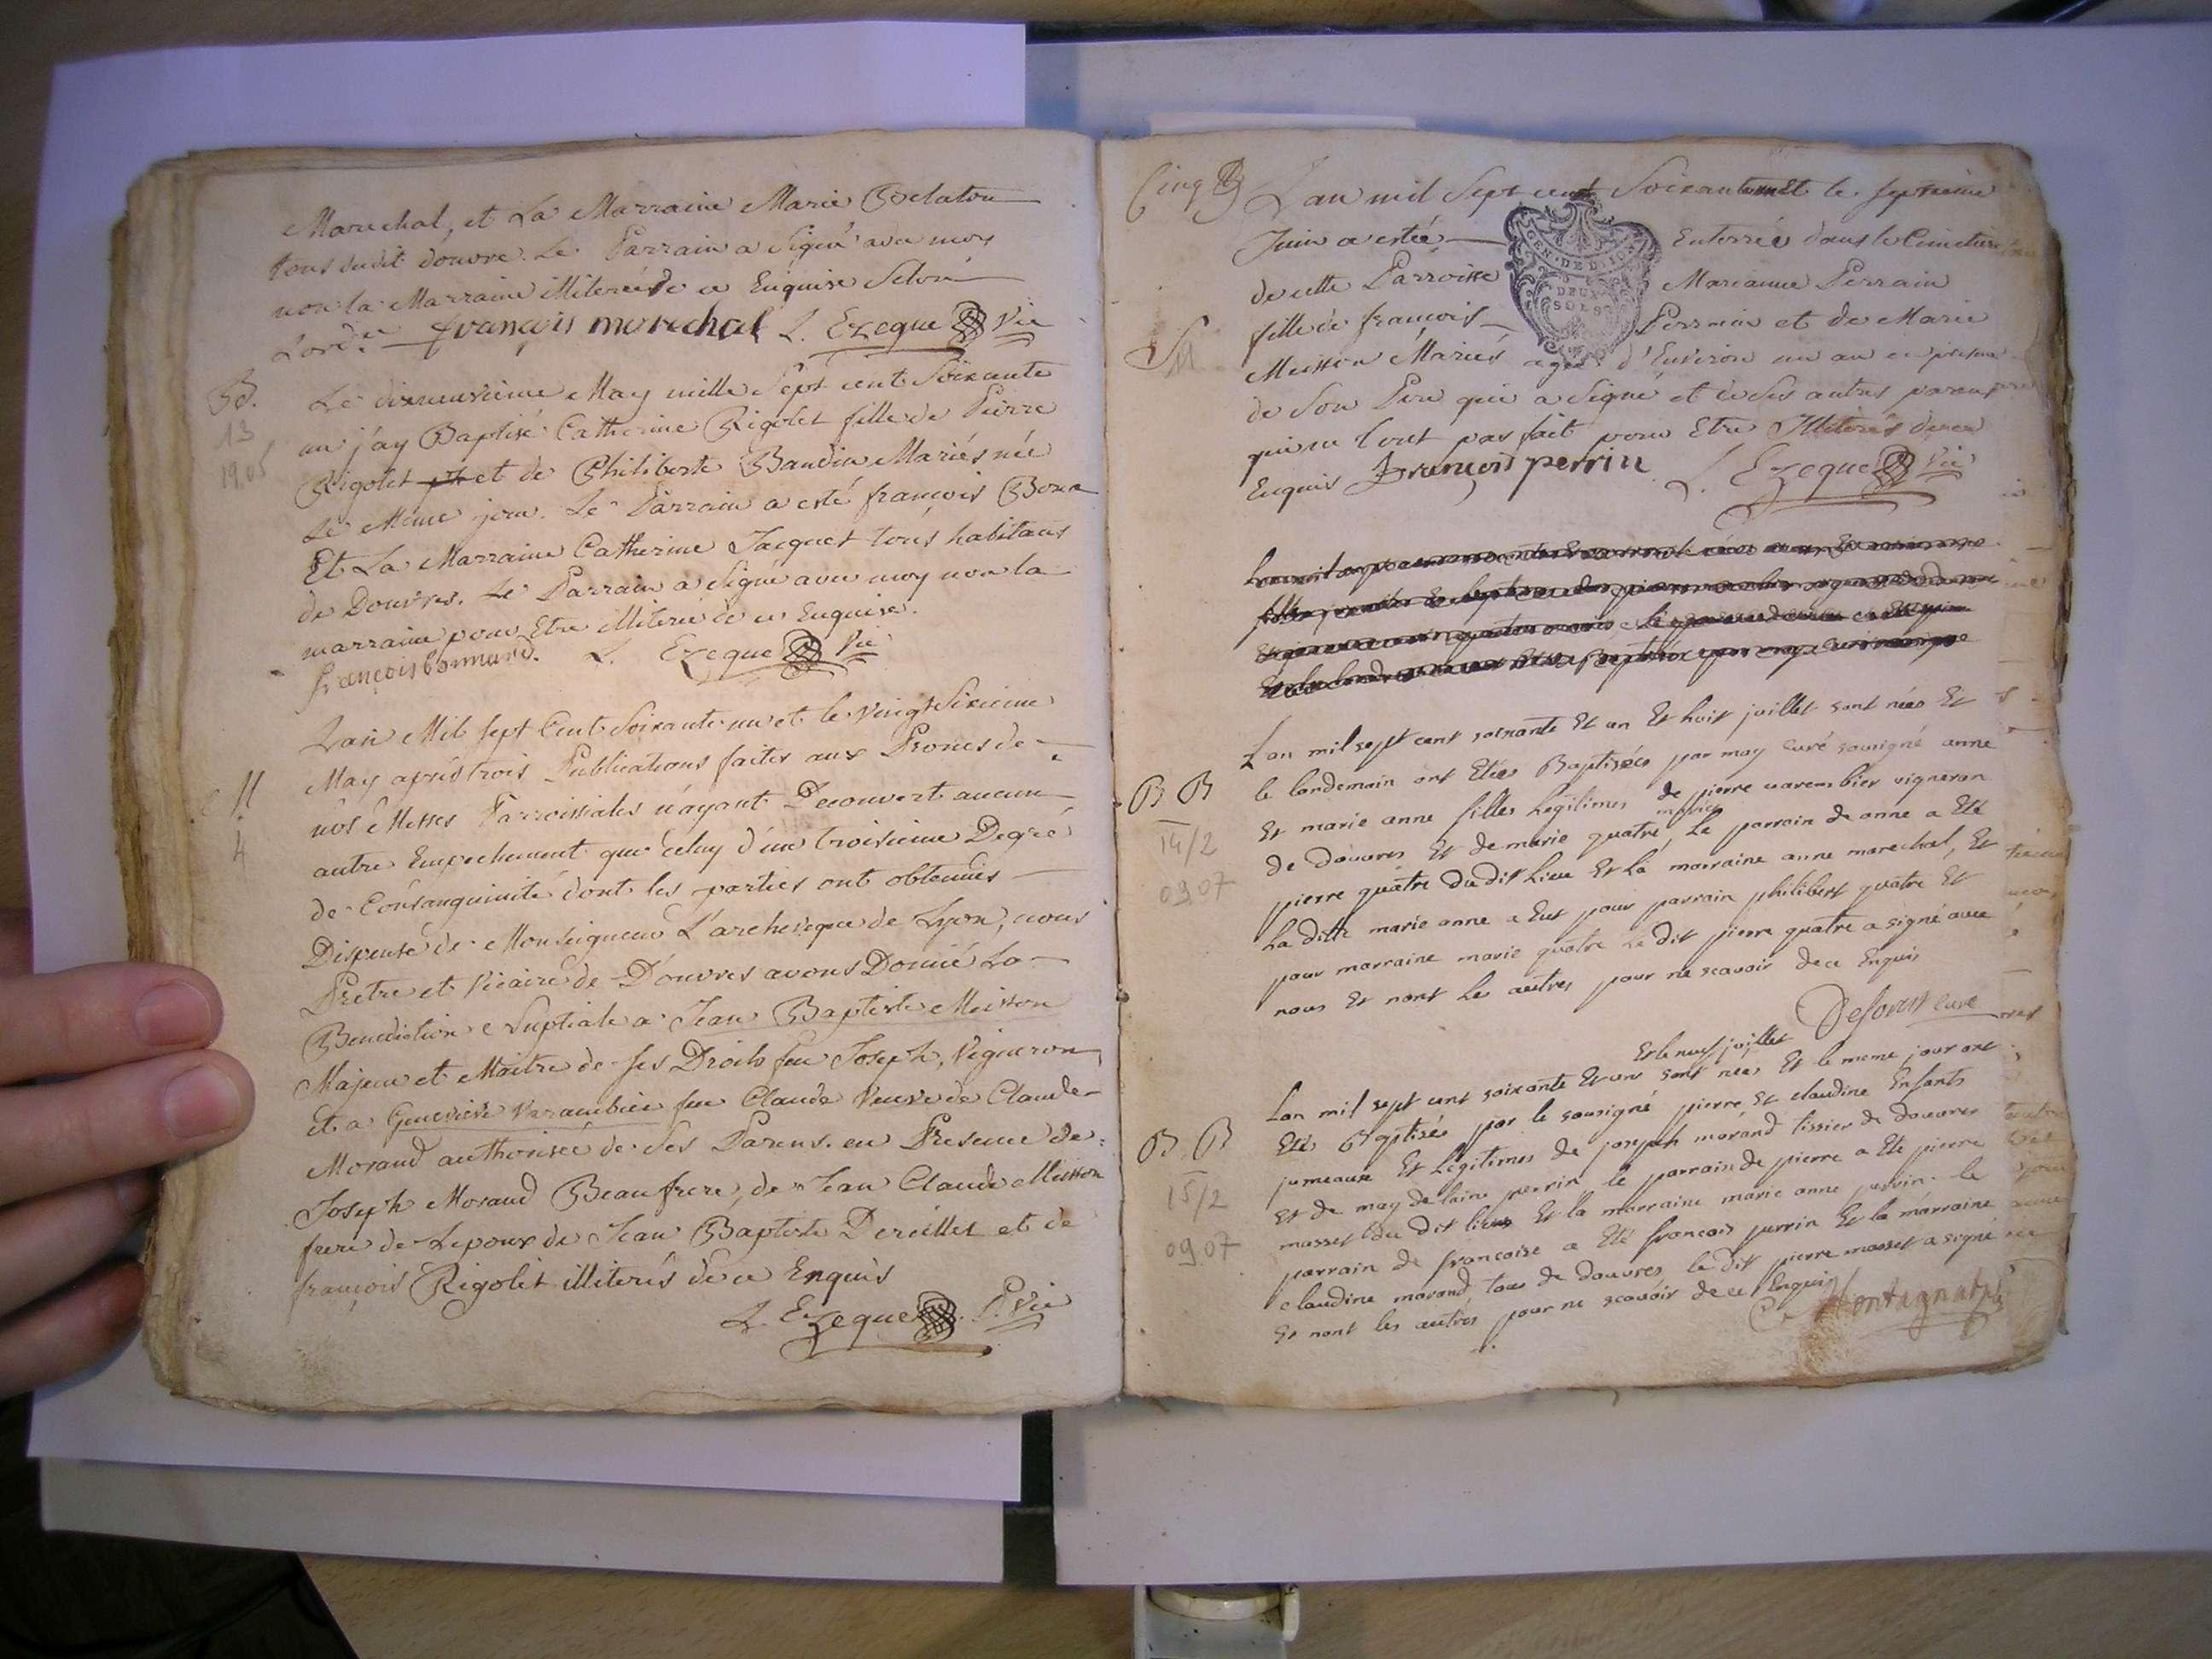 Marechal, et La Marraine Marie
tous dudit douvre. Le Parrain a Signé avec moy
non la Marraine illiterée de ce Enquise Selon
Lord.ce françois marechal L. Ezeque Vic
B.
13
19.05
Le dixneuvieme May mille Sept cent Soixante
un j'ay Baptisé Catherine Rigolet fille de Pierre
Rigolet et de Philiberte Baudin Mariés née
Le Meme jour. Le Parrain a esté françois Bonn
Et La Marraine Catherine Jacquet tous habitans
de Douvres. Le Parrain a Signé avec moy non la
marraine pour Etre illiterée de ce Enquise.
françois bonnard. L. Ezeque Vic
M
4
L'an Mil sept Cent Soixante un et le Vingt Sixieme
May aprés trois Publications faites aux Prones de
nos Messes Parroissiales n'ayant Decouvert aucun
autre Empechement que celuy d'un troisieme Degré
de Consanguinité dont les parties ont obtenues
Dispense de Monseigneur L'archeveque de Lyon, nous
Pretre et Vicaire de Douvres avons Donné La
Benediction Nuptiale a Jean Baptiste Musson
Majeur et Maitre de ses Droits feu Joseph, Vigneron
Et a Genevieve Varambier feu Claude Veuve de Claude
Morand authorisée de Ses Parens. en Presence de
Joseph Morand Beaufrere, de Jean Claude Musson
frere de Lepoux de Jean Baptiste Dereillet et de
françois Rigolet illiterés de ce Enquis
L. Ezeque P. Vic
Cinq
L'an mil Sept cent Soixante et le septieme
Juin a estée Enterrée dans le Cimetiere
GEN. DE DIJON
DEUX
SOLS
de cette Parroisse Marianne Perrain
fille de françois Perrain et de Marie
Musson Mariés agée d'Environ un an en presence
de Son Pere qui a Signé et de Ses autres parens
qui ne l'ont pas fait pour Etre Illiterés de ce
Enquis françois perrin L. Ezeque Vic
B B
14/2
09 07
L'an mil sept cent soixante Et un Et huit juillet sont nées Et
le landemain ont Etées Baptisées par moy curé sousigné anne
Et marie anne filles Legitimes de pierre varembier vigneron
de douvres Et de marie quatre mariés, Le parrain de anne a Eté
pierre quatre Du dit Lieu Et La marraine anne marechal, Et
La ditte marie anne a Eut pour parrain philibert quatre Et
pour marraine marie quatre Le dit pierre quatre a signé avec
nous Et nont Les autres pour ne scavoir de ce Enquis
curé
Et le neuf juillet
B. B
15/2
09 07
Lan mil sept cent soixante Et un sont nées Et le meme jour ont
Etés Baptisés par le sousigné pierre Et claudine Enfants
jumeaux Et Legitimes de joseph morand tissier de douvres
Et de magdelaine perrin le parrain de pierre a Eté pierre
masset du dit lieux Et la marraine marie anne perrin. le
parrain de francoise a Eté francois perrin Et la marraine
claudine morand, tous de douvres le dit pierre masset a signé
Et nont les autres pour ne scavoir de ce Enquis
Montagnat